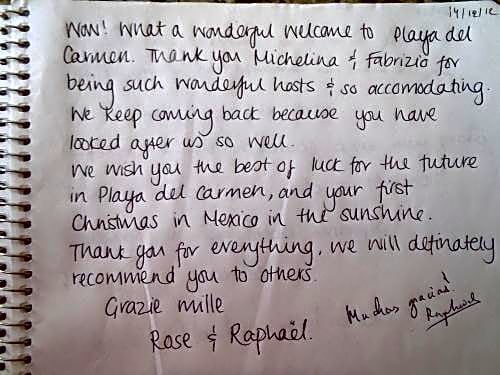 14/12/12
Wow! What a wonderful welcome to Playa del
Carmen. Thank you Michelina & Fabrizio for
being such wonderful hosts & so accomodating.
We keep coming back because you have
looked after us so well.
We wish you the best of luck for the future
in Playa del Carmen, and your first
Christmas in Mexico in the sunshine.
Thank you for everything, we will definately
recommend you to others.
Grazie mille
Muchas gracias!
Raphaël
Rose & Raphaël.